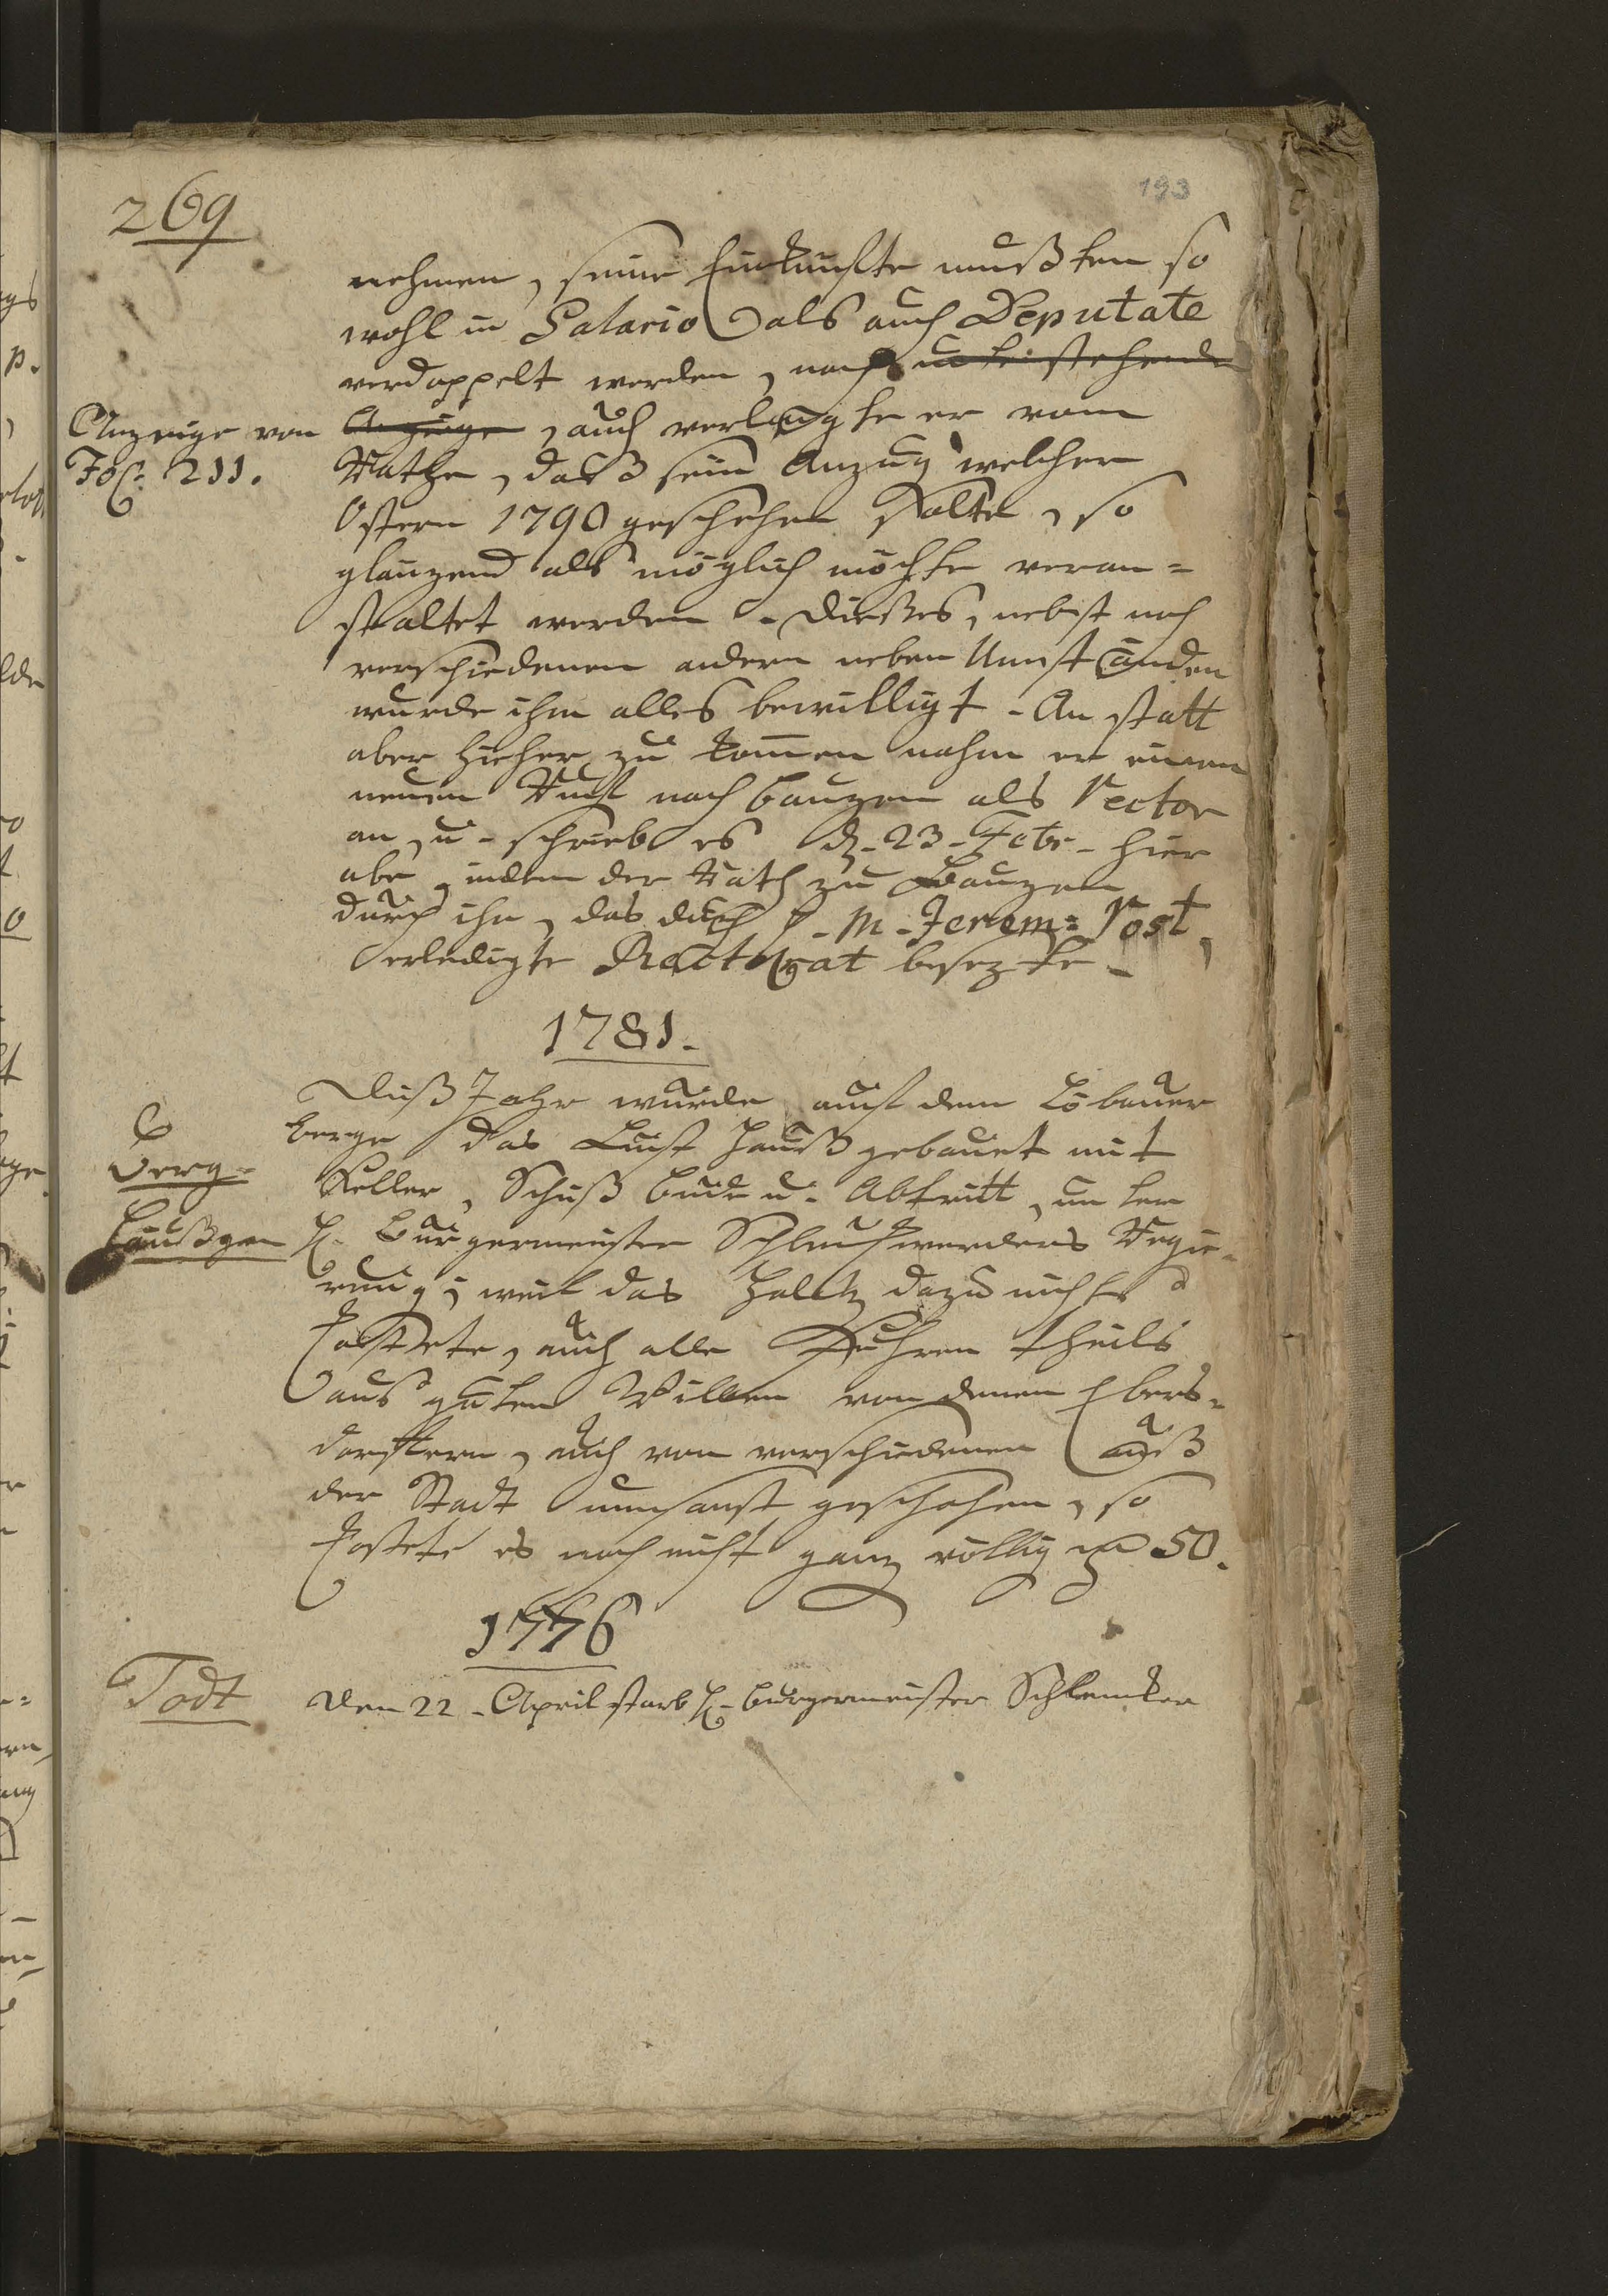 269
193
nehmen, seine Einkünfte mußten so
wohl in Salario als auch Deputate
verdoppelt werden, nach untenstehende
Anzeige von
Fol: 211.
Anzeige, auch verlangte er vom
Rathe, daß sein Anzug welcher
Ostern 1790 geschehen solte, so
glänzend als möglich möchte veran=
staltet werden. Dießes, nebst noch
verschiedenen andern neben Umständen
wurde ihm alles bewilligt. An statt
aber hieher zu kom̄en nahm er einen
neuen Ruf nach Bauzen als Rector
an, u. schrieb es d. 23. Febr. hier
abe, indem der Rath zu Bauzen
durch ihn, das durch H. M. Jerem: Rost
erledigte Rectorat besezte.
1781.
Berg=
Häußgen
Dieß Jahr wurde auf dem Löbauer
berge das Lust Hauß gebauet mit
Keller, Schuß bude u. Abtritt, unter
H. Bürgermeister Regie=
rung, weil das Holtz dazu nichts
kostete, auch alle Fuhren theils
aus guten Willen von denen Ebers=
dorffern, auch von verschiedenen auß
der Stadt umsonst geschahen, so
kostete es noch nicht ganz völlig 50.
1776
Todt
Den 22. April starb H. Bürgermeister Schlenker